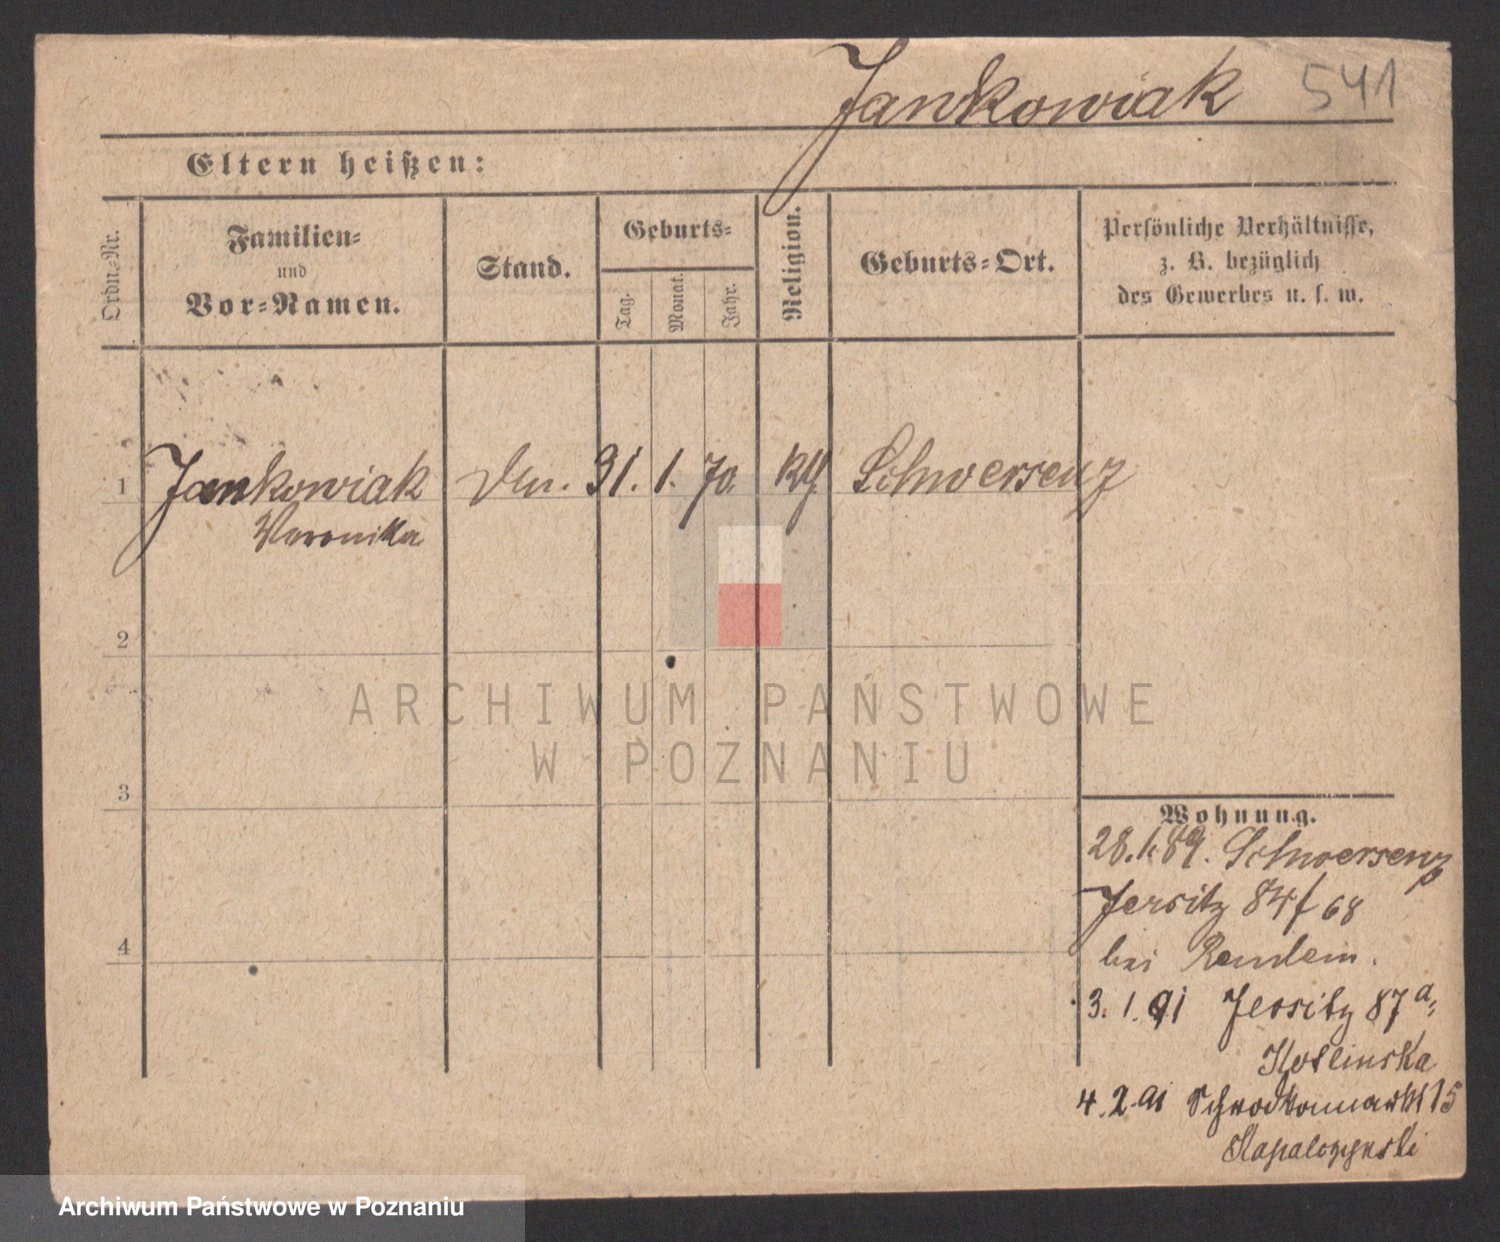 Jankowiak 541
Eltern heißen:
Ordn.-Nr.
Familien-
und
Vor-Namen.
Stand.
Geburts-
Tag.
Monat.
Jahr.
Religion.
Geburts-Ort.
Persönliche Verhältnisse,
z. B. bezüglich
des Gewerbes u. s. w.
1 Jankowiak 31. 1. 70. Schwersenz
Veronika
2
3
4
ARCHIWUM PAŃSTWOWE
W POZNANIU
Wohnung.
28.1.89. Schwersenz
Jersitz 84f 68
bei
3. 1. 91 Jersitz 87a,
4. 2. 91 15
Archiwum Państwowe w Poznaniu